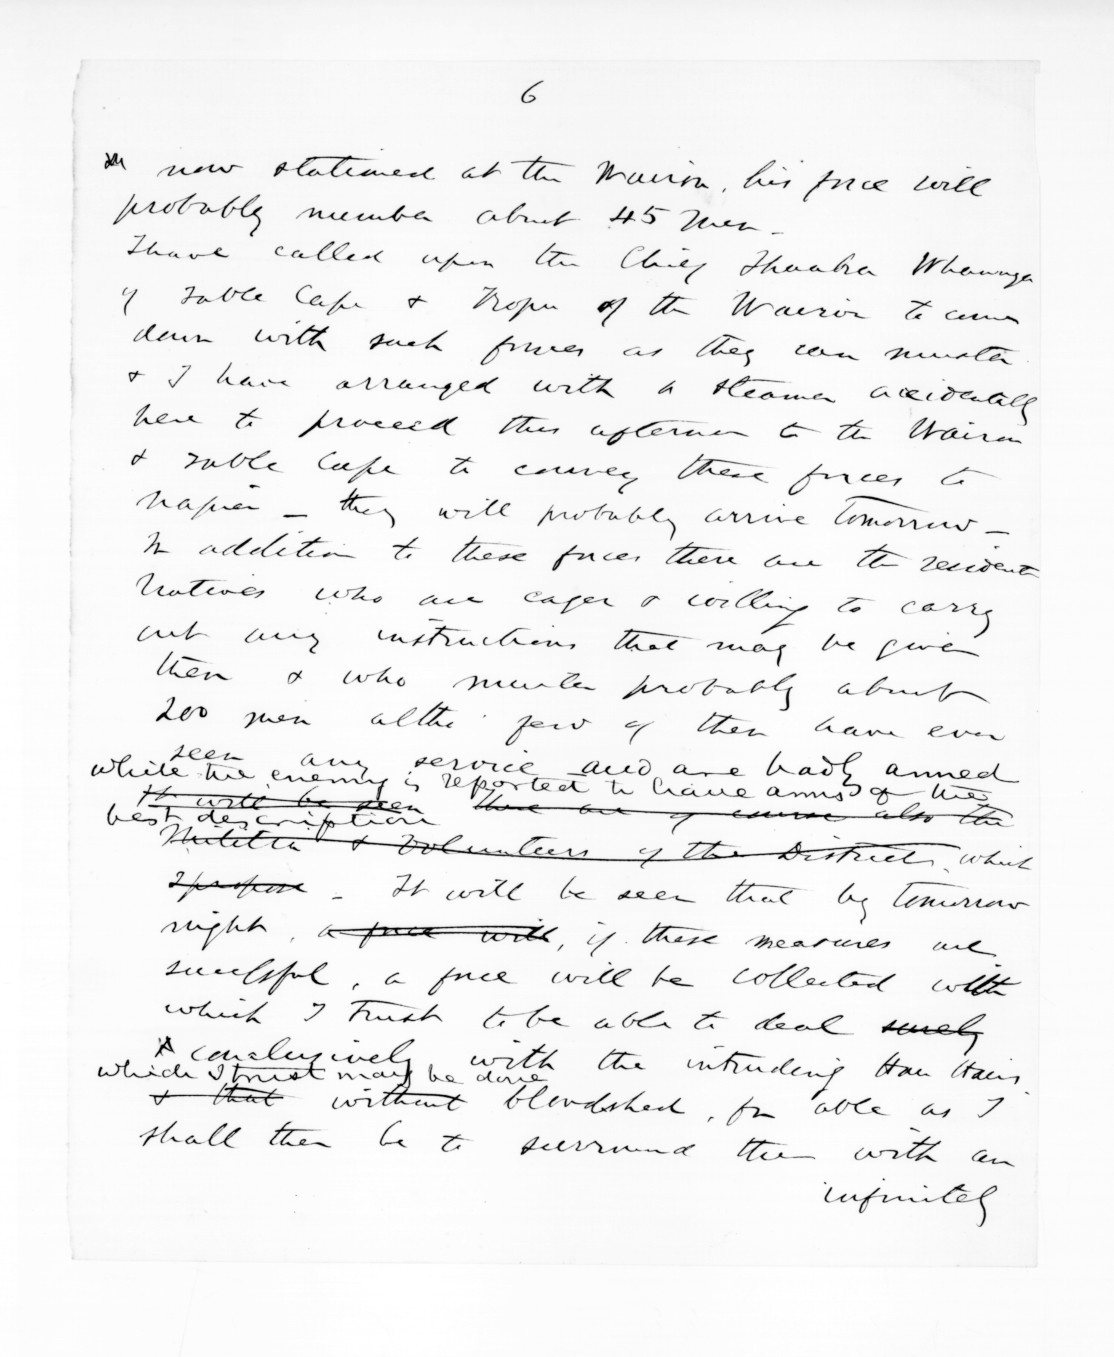 6
now stationed at the Wairoa, his force will
probably number about 45 men -
I have called upon the Chief Ihaaka Whaanga
of Table Cape & Kopu of the Wairoa to come
down with such forces as they can muster
& I have arranged with a steamer accidentally
here to proceed this afternoon to the Wairoa
& Table Cape to convey these forces to
Napier - they will probably arrive tomorrow -
In addition to these forces there are the resident
Natives who are eager & willing to carry
out any instructions that may be given
them & who muster probably about
200 men altho' few of them have ever
seen any service and are badly armed
while the enemy is reported to have arms of the
It will be seen There are of course also the
best description
Militia & Volunteers of the Districts, which
I propose - It will be seen that by tomorrow
night, a force will, if these measures are
successful, a force will be collected with
which I trust to be able to deal surely
& conclusively with the intruding Hau Haus
which I trust may be done
& that without bloodshed, for able as I
shall then be to surround them with an
infinitely